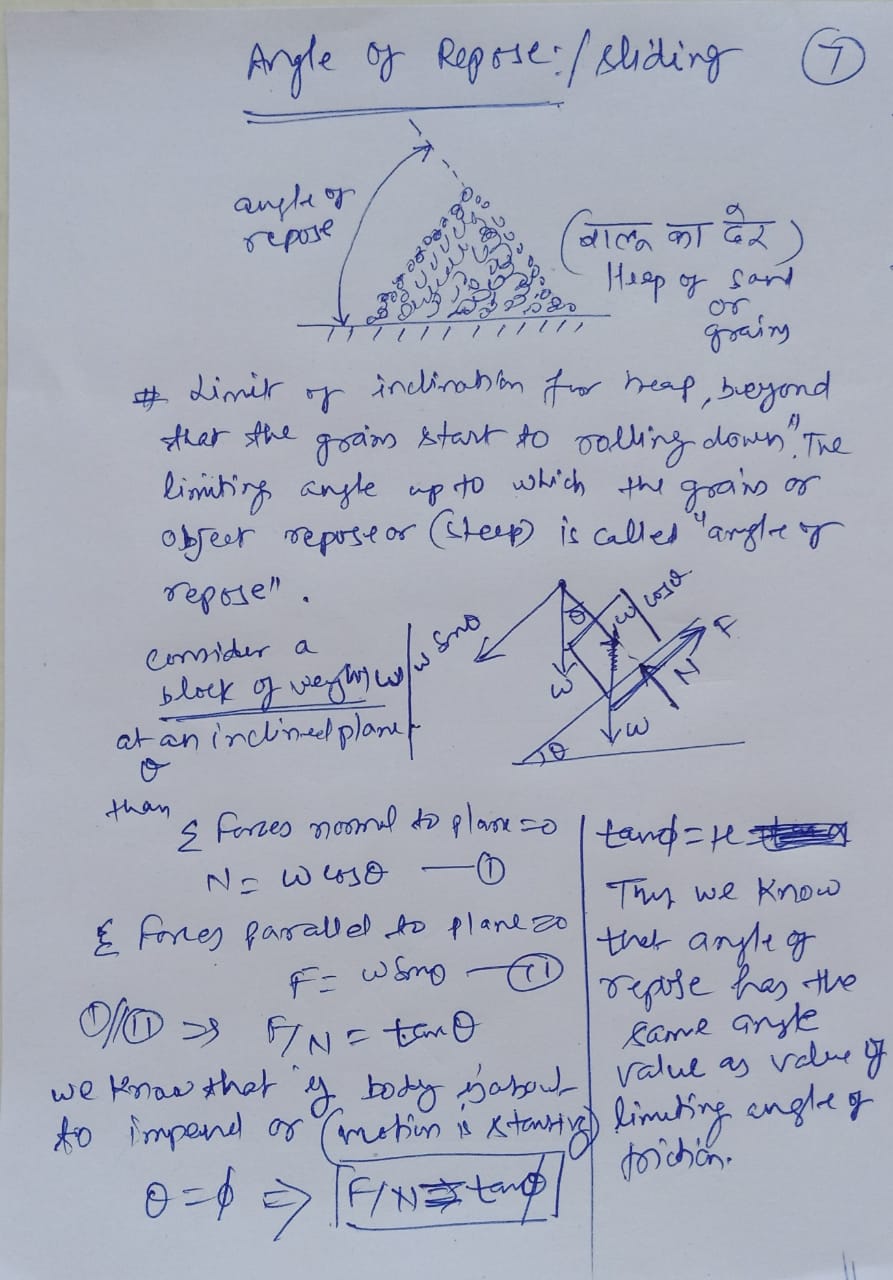 Angle of Repose:/sliding
7
angle of
repose
(बालू का ढेर)
Heap of sand
or
grains
# Limit of inclination for heap, beyond
that the grains start to rolling down". The
limiting angle up to which the grains or
object repose or (steep) is called "angle of
repose".
consider a
block of weight W
at an inclined plane
θ
than
W sinθ
θ
W cosθ
F
N
W
W
θ
Σ Forces normal to plane = 0
N = W cosθ — (I)
Σ Forces parallel to plane = 0
F = W sinθ — (II)
(I)/(II) ⇒ F/N = tanθ
we know that if body is about
to impend or (motion is starting)
θ = φ ⇒ F/N = tanφ
tanφ = μ =
Thus we know
that angle of
repose has the
same angle
value as value of
limiting angle of
friction.